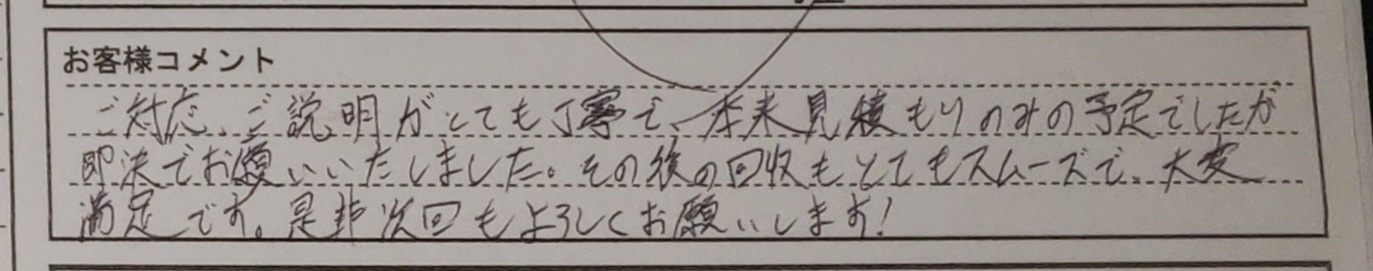 お客様コメント
ご対応、ご説明がとても丁寧で、本来見積もりのみの予定でしたが
即決でお願いいたしました。その後の回収もとてもスムーズで、大変
満足です。是非次回もよろしくお願いします!